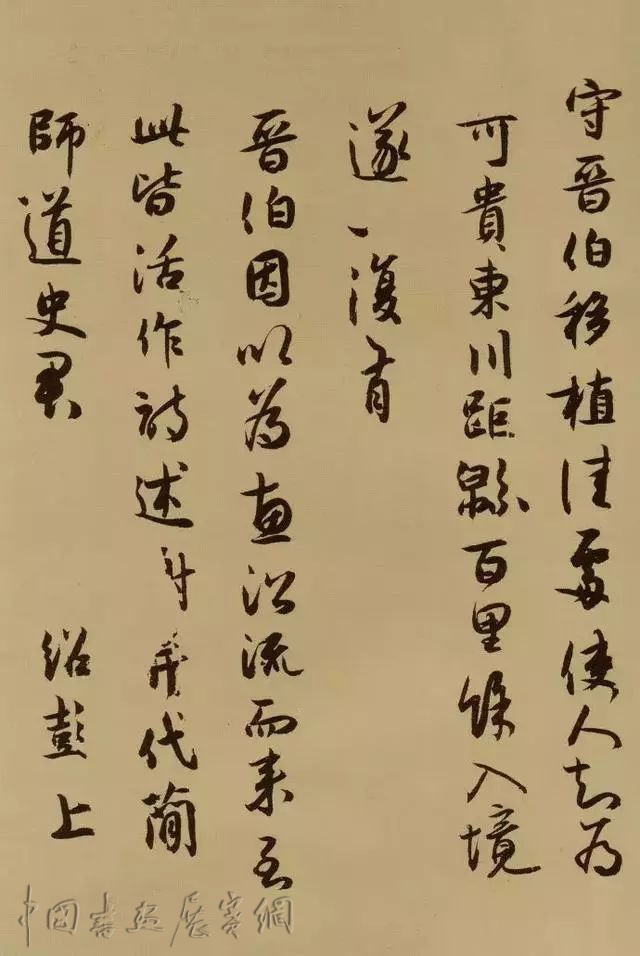 守晉伯移植佳處使人知為
可貴東川距緜百里餘入境
遂不復有
晉伯因以為惠沿流而来至
此皆活作詩述代簡
師道史君 紹彭上
中國書畫展賽網